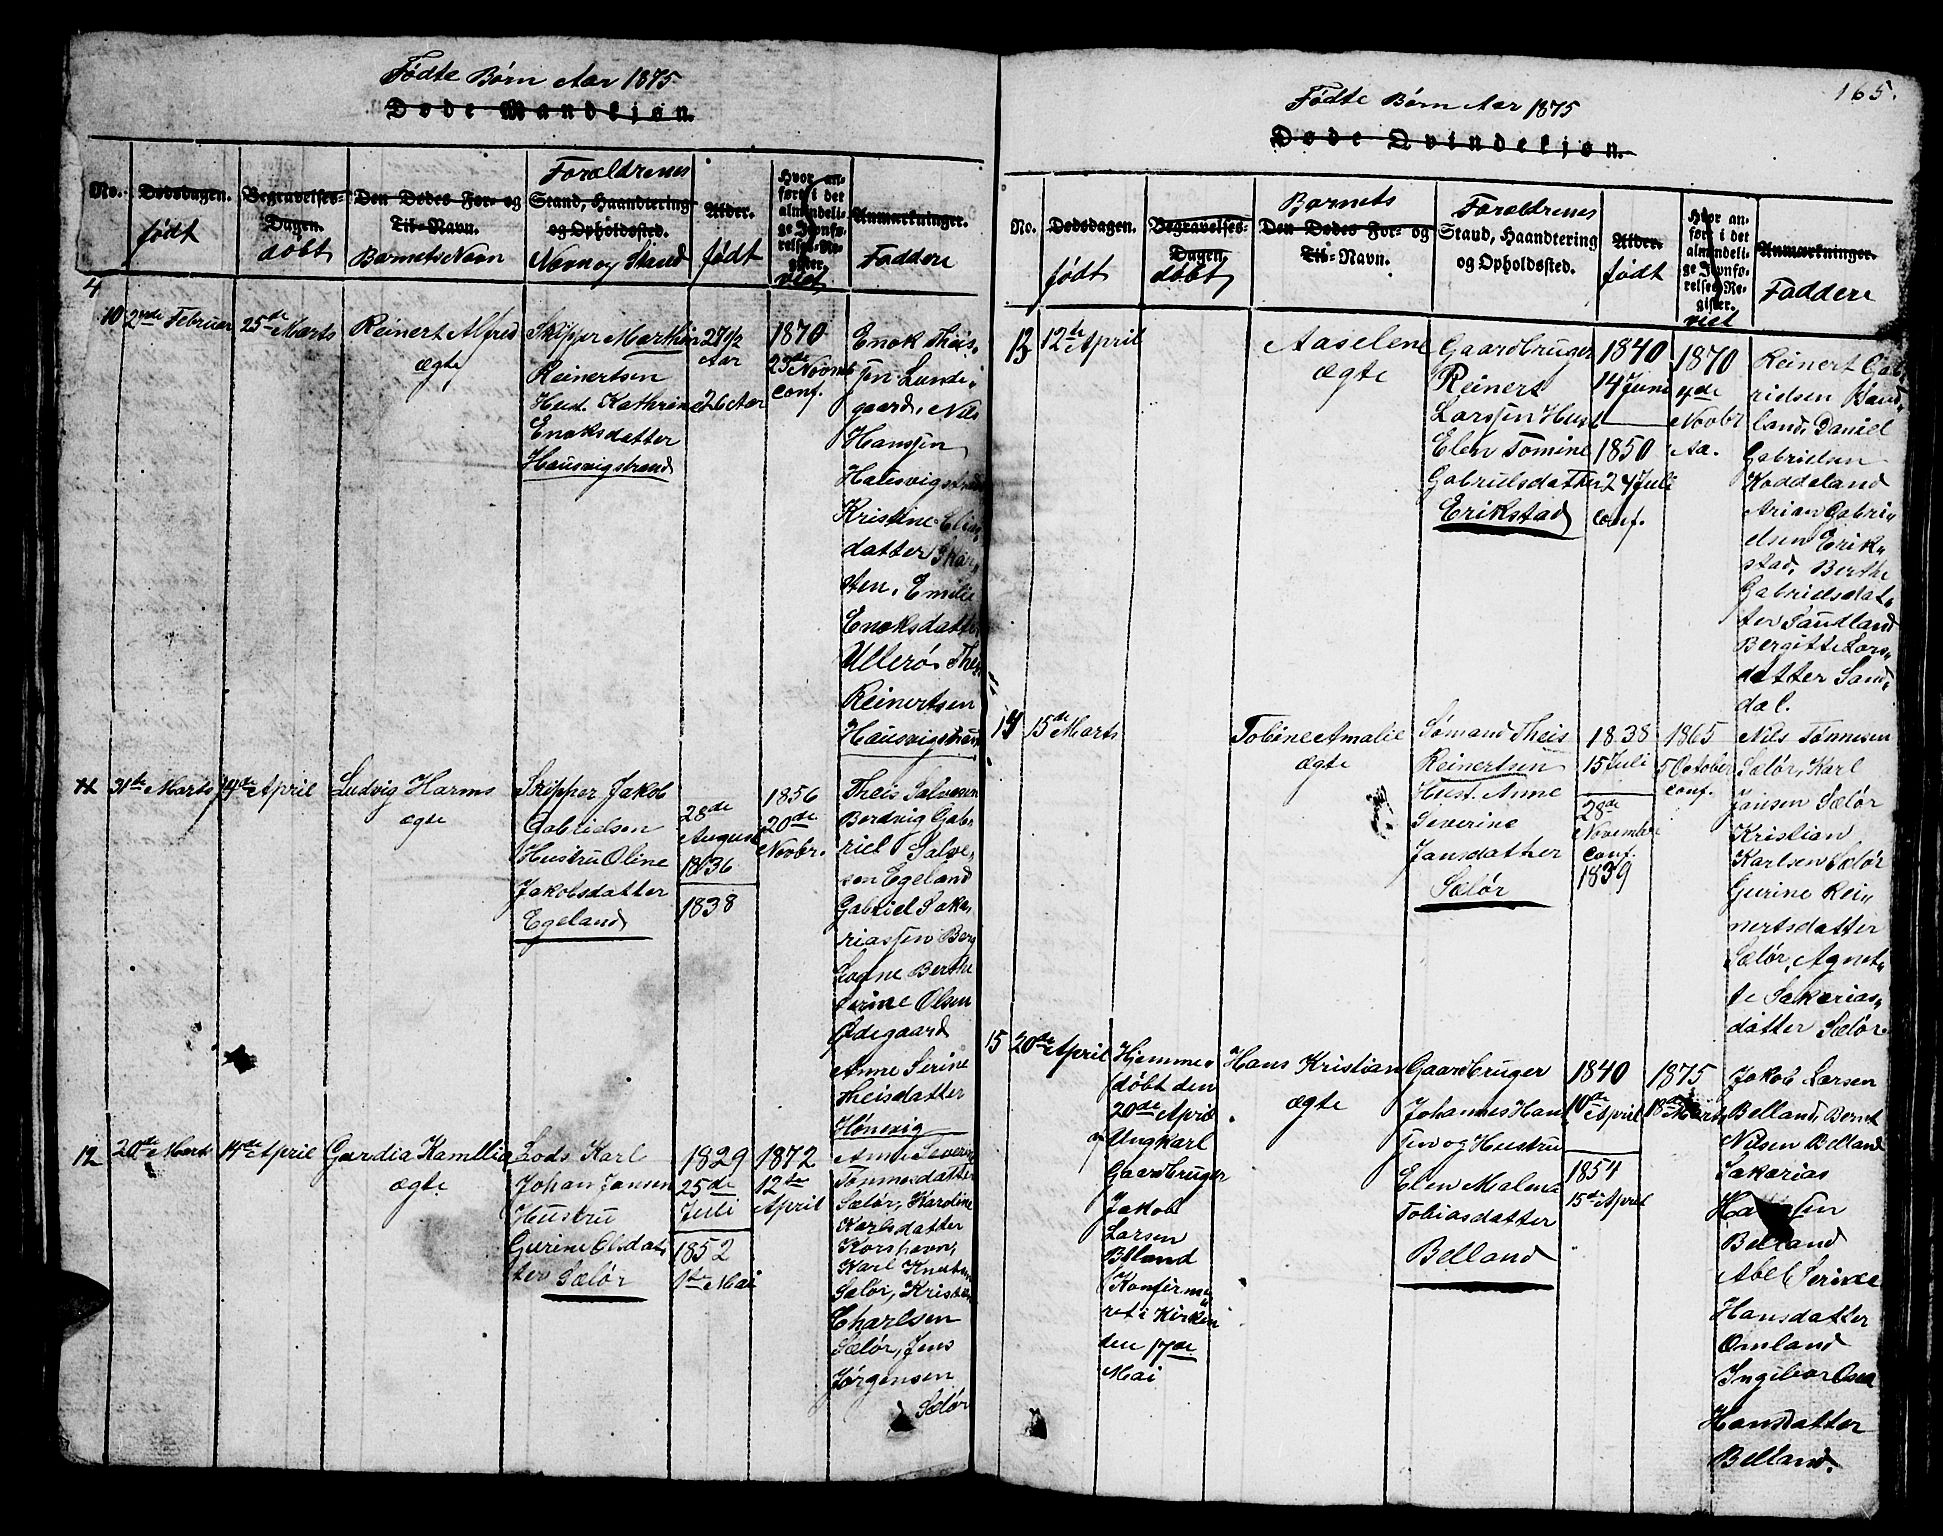 Fødte Børn Aar 1875
Døde Mandkjøn.
No.
Dødsdagen.
født
Begravelses-
Dagen.
døbt
Den Dødes For- og
Til-Navn.
Barnets Navn
Forældrenes
Stand, Haandtering
og Opholdssted.
Navn og Stand
Alder.
født
Hvor an-
ført i det
almindeli-
ge Jevnfø-
relses-Re-
gister.
viet
Anmærkninger.
Faddere
4
10
2nde Februar
25de Marts
Reinert Alfred
ægte
Skipper Marthin
Reinertsen
Hust. Kathrine
Enoksdatter
Hausvigstrand
27 1/2
Aar
26 Aar
1870
23de Novmb
Conf.
Enok Theis,
sen Lunde,
gaard, Nils
Hanssen
Hausvigstrand
Kristine Elias,
datter Skar,
ten, Emilie
Enoksdatter
Ullerø, Theis
Reinertsen
Hausvigstrand
11
31te Marts
14de April
Ludvig Harms
ægte
Skipper Jakob
Gabrielsen
Hustru Oline
Jakobsdatter
Egeland
28de
August
1836
1838
1856
20de
Novbr.
Theis Salvesen
Bordvig Gab,
riel Salve,
sen Egeland
Gabriel Saka,
riassen Berg
Berthe
Olsen
Ødegaard
Anne Serine
Theisdatter
Hønevig
12
20de Marts
14de April
Gardia Kamllia
ægte
Lods Karl
Johan Jansen
Hustru
Gurine Olsdat,
ter Sælør
1829
25de
Juli
1852
1te Mai
1872
12te
April
Anne Severine
Tønnesdatter
Sælør, Karoline
Karlsdatter
Korshavn,
Karl Knutsen
Sælør, Kristian
Charlsen
Sælør, Jens
Jørgensen
Sælør
165.
Fødte Børn Aar 1875
Døde Qvindekjøn.
No.
Dødsdagen.
født
Begravelses-
Dagen.
døbt
Barnets
Den Dødes For- og
Til-Navn.
Forældrenes
Stand, Haandtering
og Opholdssted.
Alder.
født
Hvor an-
ført i det
almindeli-
ge Jevnfø-
relses-Re-
gister.
viet
Anmærkninger.
Faddere
13
12te April
Aaselene
ægte
Gaardbruger
Reinert
Larssen Hust
Elen Tomine
Gabrielsdatter
Erikstad
1840
14 Juni
1850
24 Juli
Conf.
1870
4de
Novbr
Aa.
Reinert Gab,
rielsen Band,
land, Daniel
Gabrielsen
Koddeland
Arian Gabri,
elsen Erik,
stad, Berthe
Gabrielsdat,
ter
Bergitte Lars,
datter Sand,
dal.
14
15de Marts
Tobine Amalie
ægte
Sømand Theis
Reinertsen
Hust. Anne
Severine
Jansdatter
Sælør
1838
15 Juli
28de
November
Conf.
1839
1865
5 October
Conf.
Nils Tønnesen
Sælør, Karl
Jansen Sælør
Kristian
Karlsen Sælør
Gurine Rei,
nertsdatter
Sælør, Agnet,
te Sakarias,
datter Sælør
15
20de April
Hjemme,
døbt den
20de April
af Ungkarl
Gaardbruger
Jakob
Larsen
Belland
Konfirme,
ret i Kirken
den 17de
Mai
Hans Kristian
ægte
Gaardbruger
Johannes Han
sen og Hustru
Elen Malena
Tobiasdatter
Belland
1840
10de April
1854
15de April
1875
18de Marts
Jakob Larsen
Belland, Bernt
Nilsen Belland
Sakarias
Belland
Abel Serine
Hansdatter
Omland
Ingebor Osea
Hansdatter
Belland.